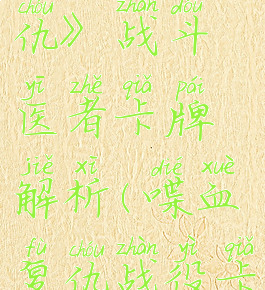 chóu zhàn dòu
仇》 战斗
yī zhě qiǎ pái
医者卡牌
jiě xī dié xuè
解析（喋血
fù chóu zhàn yì qiǎ
复仇战役卡